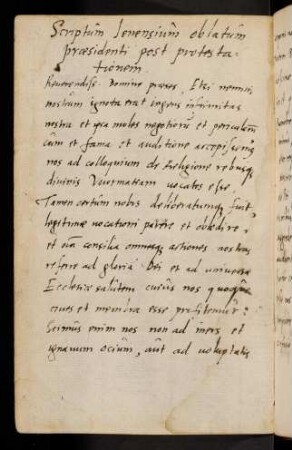 Scriptum Ienensium oblatum
præsidenti post protesta-
tionem
Reverendiss. Domine præses, Etsi nemini
nostrum ignota erat ingens infirmitas
nostra et ipsa moles negotiorum et periculum
cum et fama et auditione accepissemus
nos ad colloquium de Religione rebusque
divinis Vuormatiam vocatos esse,
Tamen certum nobis deliberatumque fuit,
legitimæ vocationi parere et obedire,
et omnia consilia omnesque actiones nostras
referre ad gloriam Dei et ad universæ
Ecclesiæ salutem cuius nos quoque
cives et membra esse profitemur:
Scimus enim nos non ad iners et
ignavum ocium, aut ad voluptates